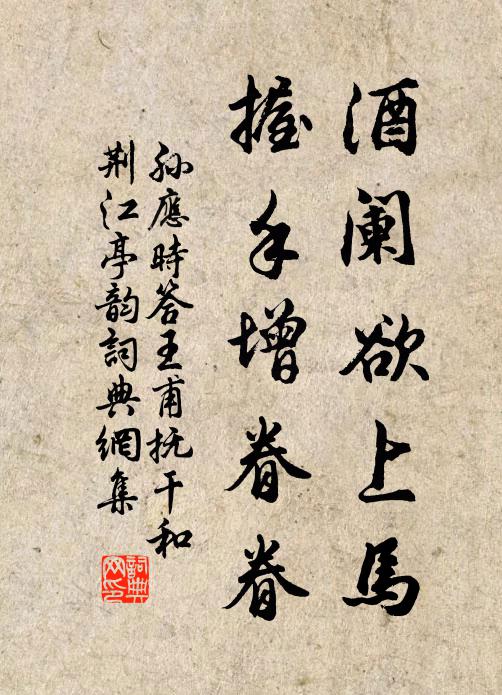 酒阑欲上馬
握手增眷眷
孙應時答王甫抚干和
荆江亭韵詞典網集
詞典网印